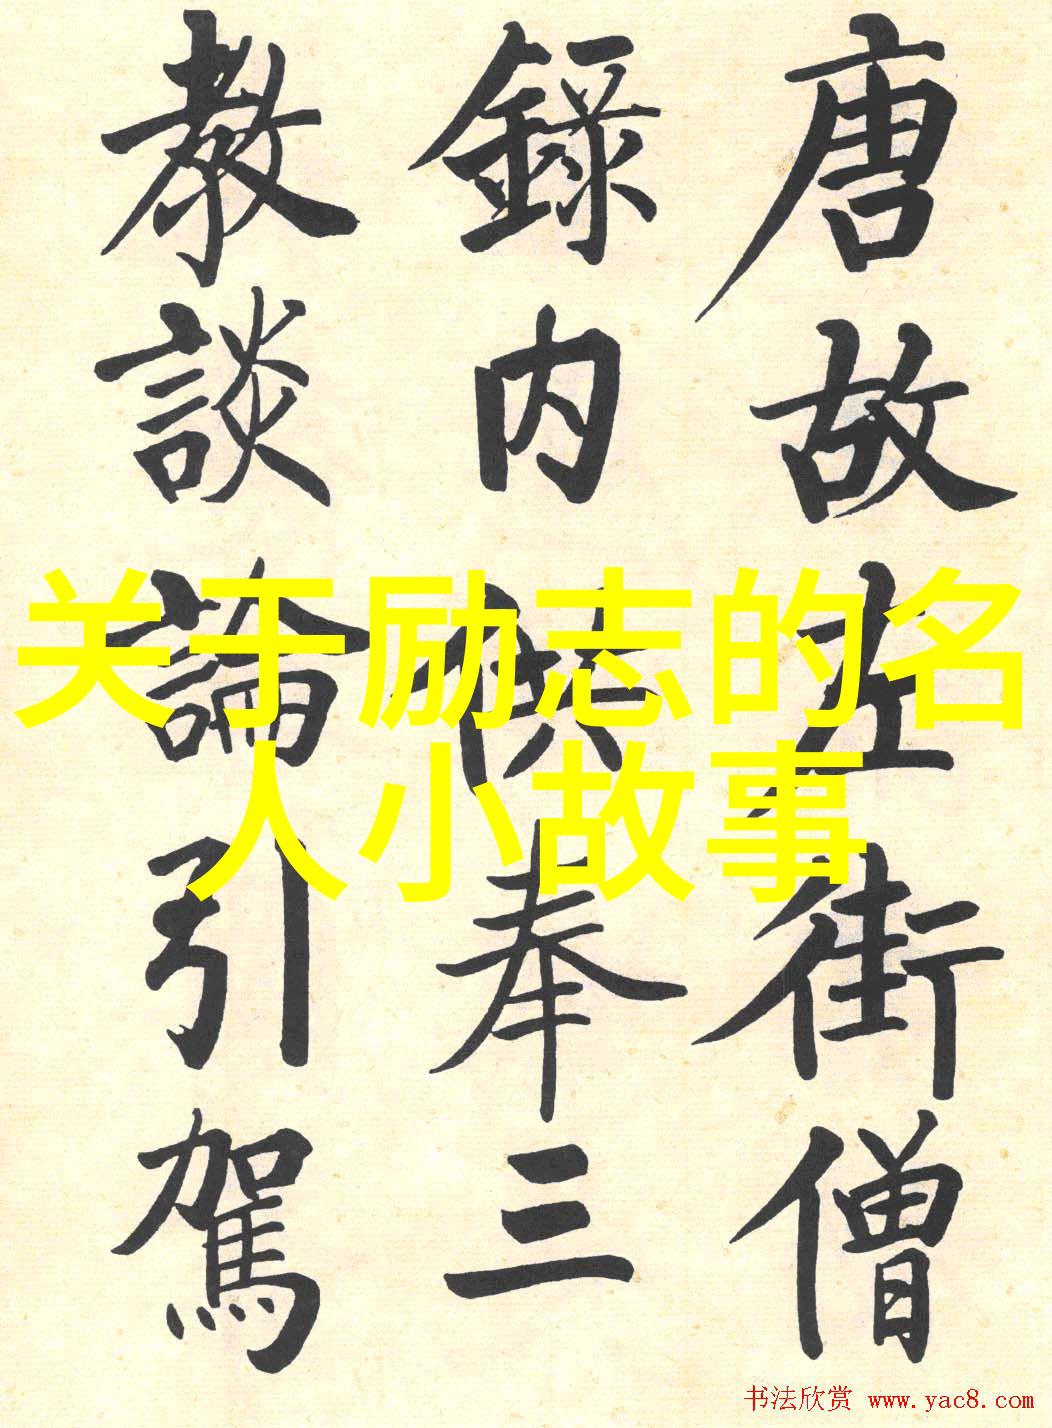 唐故左街僧
錄內供奉三
教談論引駕
关于励志的名
人小故事
书法欣赏 www.yac8.com